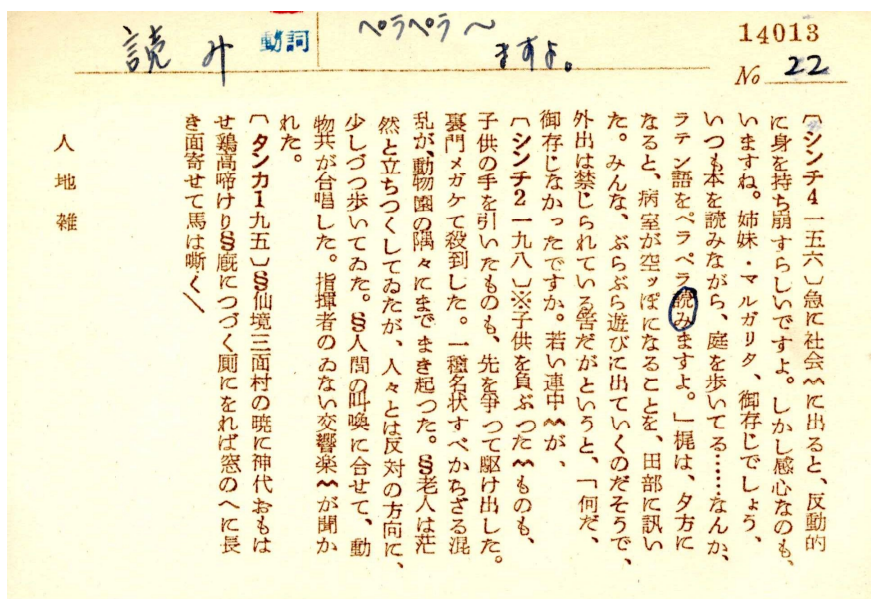 読み 動詞 ペラペラ〜
ますよ。
14013
No 22
〔シンチ4一五六〕急に社会〽に出ると、反動的
に身を持ち崩すらしいですよ。しかし感心なのも、
いますね。姉妹・マルガリタ、御存じでしょう、
いつも本を読みながら、庭を歩いてる……なんか、
ラテン語をペラペラ読みますよ。」梶は、夕方に
なると、病室が空ッぽになることを、田部に訊い
た。みんな、ぶらぶら遊びに出ていくのだそうで、
外出は禁じられている筈だがというと、「何だ、
御存じなかったですか。若い連中〽が、
〔シンチ2一九八〕※子供を負ぶつた〽ものも、
子供の手を引いたものも、先を争つて駆け出した。
裏門メガケて殺到した。一種名状すべかちざる混
乱が、動物園の隅々にまでまき起つた。§老人は茫
然と立ちつくしてゐたが、人々とは反対の方向に、
少しづつ歩いてゐた。§人間の叫喚に合せて、動
物共が合唱した。指揮者のゐない交響楽〽が聞か
れた。
〔タンカ1九五〕§仙境三面村の暁に神代おもは
せ鶏高啼けり§廐につづく厠にをれば窓のへに長
き面寄せて馬は嘶く╲
人地雑